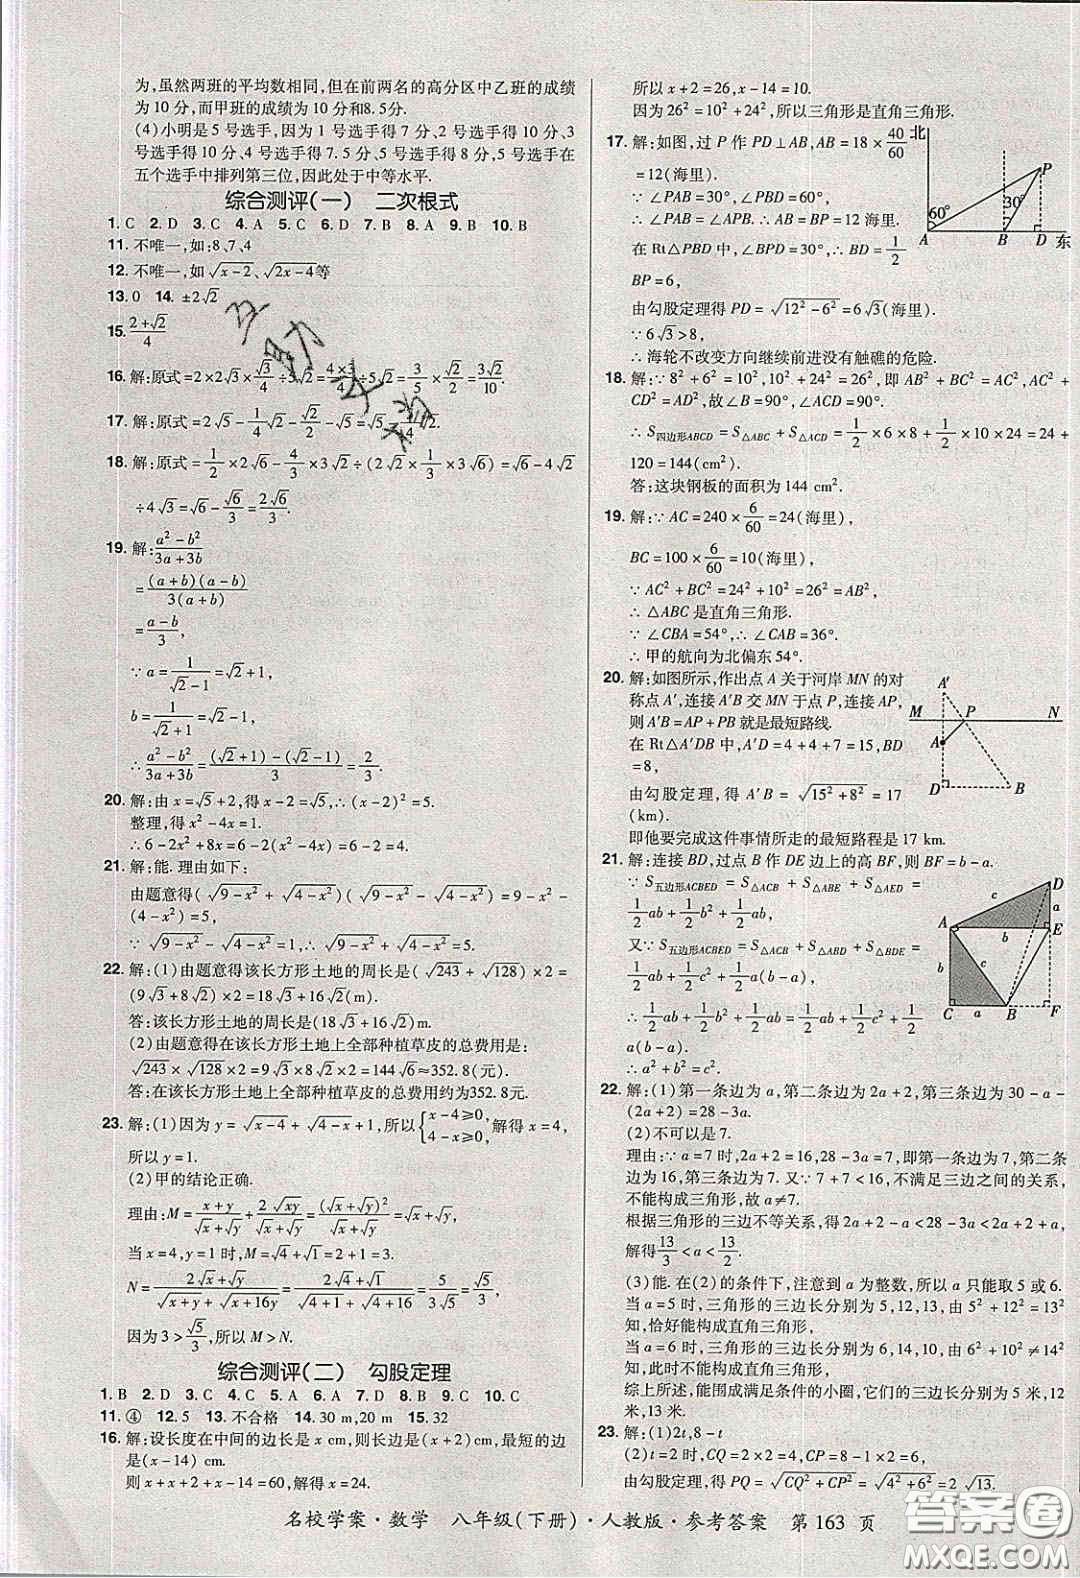 为,虽然两班的平均数相同,但在前两名的高分区中乙班的成绩
为10分,而甲班的成绩为10分和8.5分.
(4)小明是5号选手,因为1号选手得10分,2号选手得10分,3
号选手得7.5分,4号选手得7分,5号选手得8分,5号选手在
五个选手中排列第三位,因此处于中等水平.
综合测评(一) 二次根式
1. C 2. D 3. C 4. A 5. C 6. D 7. B 8. A 9. B 10. B
11. 不唯一,如:8,7,4
12. 不唯一,如√(x-2)、√(2x-4)等
13. 0 14. ±2√2
15. (2+√2)/4
16. 解:原式=2×2√3×√3/4÷5√2=(4×3)/4÷5√2=3/5×√2/2=3√2/10.
17. 解:原式=2√5-1/4√2-√2/2-√5=√5-3/4√2.
18. 解:原式=1/2×2√6-4/3×3√2÷(2√2×1/3×3√6)=√6-4√2
÷4√3=√6-√6/3=2√6/3.
19. 解:(a²-b²)/(3a+3b)
=(a+b)(a-b)/3(a+b)
=(a-b)/3,
∵a=1/(√2-1)=√2+1,
b=1/(√2+1)=√2-1,
∴(a²-b²)/(3a+3b)=((√2+1)-(√2-1))/3=2/3.
20. 解:由x=√5+2,得x-2=√5,∴(x-2)²=5.
整理,得x²-4x=1.
∴6-2x²+8x=6-2(x²-4x)=4.
21. 解:能.理由如下:
由题意得(√(9-x²)+√(4-x²))(√(9-x²)-√(4-x²))=9-x²-
(4-x²)=5,
∵√(9-x²)-√(4-x²)=1,∴√(9-x²)+√(4-x²)=5.
22. 解:(1)由题意得该长方形土地的周长是(√243+√128)×2=
(9√3+8√2)×2=18√3+16√2(m).
答:该长方形土地的周长是(18√3+16√2)m.
(2)由题意得在该长方形土地上全部种植草皮的总费用是:
√243×√128×2=9√3×8√2×2=144√6≈352.8(元).
答:在该长方形土地上全部种植草皮的总费用约为352.8元.
23. 解:(1)因为y=√(x-4)+√(4-x)+1,所以{x-4≥0, 4-x≥0,解得x=4,
所以y=1.
(2)甲的结论正确.
理由:M=(x+y)/(√x+√y)+2√xy/(√x+√y)=(√x+√y)²/(√x+√y)=√x+√y,
当x=4,y=1时,M=√4+√1=2+1=3.
N=(2√x+√y)/(√(x+y)+√(x+16y))=(2√4+√1)/(√(4+1)+√(4+16))=5/(3√5)=√5/3,
因为3>√5/3,所以M>N.
综合测评(二) 勾股定理
1. B 2. D 3. C 4. C 5. A 6. B 7. D 8. C 9. C 10. C
11. ④ 12. 5 13. 不合格 14. 30 m,20 m 15. 32
16. 解:设长度在中间的边长是x cm,则长边是(x+2)cm,最短的边
是(x-14) cm.
则x+x+2+x-14=60,解得x=24.
所以x+2=26,x-14=10.
因为26²=10²+24²,所以三角形是直角三角形.
17. 解:如图,过P作PD⊥AB,AB=18×40/60
=12(海里).
∵∠PAB=30°,∠PBD=60°,
∴∠PAB=∠APB,∴AB=BP=12海里.
在Rt△PBD中,∠BPD=30°,∴BD=1/2
BP=6,
由勾股定理得PD=√(12²-6²)=6√3(海里).
∵6√3>8,
∴海轮不改变方向继续前进没有触礁的危险.
北
60°
30°
P
A B D 东
18. 解:∵8²+6²=10²,10²+24²=26²,即AB²+BC²=AC²,AC²+
CD²=AD²,故∠B=90°,∠ACD=90°.
∴S四边形ABCD=S△ABC+S△ACD=1/2×6×8+1/2×10×24=24+
120=144(cm²).
答:这块钢板的面积为144 cm².
19. 解:∵AC=240×6/60=24(海里),
BC=100×6/60=10(海里),
∵AC²+BC²=24²+10²=26²=AB²,
∴△ABC是直角三角形.
∵∠CBA=54°,∴∠CAB=36°.
∴甲的航向为北偏东54°.
20. 解:如图所示,作出点A关于河岸MN的对
称点A′,连接A′B交MN于点P,连接AP,
则A′B=AP+PB就是最短路线.
在Rt△A′DB中,A′D=4+4+7=15,BD
=8,
由勾股定理,得A′B=√(15²+8²)=17
(km).
即他要完成这件事情所走的最短路程是17 km.
A′
M P N
A
D B
21. 解:连接BD,过点B作DE边上的高BF,则BF=b-a.
∵S五边形ACBED=S△ACB+S△ABE+S△AED=
1/2ab+1/2b²+1/2ab,
又∵S五边形ACBED=S△ACB+S△ABD+S△BDE=
1/2ab+1/2c²+1/2a(b-a),
∴1/2ab+1/2b²+1/2ab=1/2ab+1/2c²+1/2
a(b-a).
∴a²+b²=c².
D
c a
A b E
b c
C a B F
22. 解:(1)第一条边为a,第二条边为2a+2,第三条边为30-a-
(2a+2)=28-3a.
(2)不可以是7.
理由:∵a=7时,2a+2=16,28-3a=7,即第一条边为7,第二条
边为16,第三条边为7.又∵7+7<16,不满足三边之间的关系,
不能构成三角形.故a≠7.
根据三角形的三边不等关系,得2a+2-a<28-3a<2a+2+a,
解得13/3<a<13/2.
(3)能.在(2)的条件下,注意到a为整数,所以a只能取5或6.
当a=5时,三角形的三边长分别为5,12,13,由5²+12²=13²
知,恰好能构成直角三角形,
当a=6时,三角形的三边长分别为6,14,10,由6²+10²≠14²
知,此时不能构成直角三角形,
综上所述,能围成满足条件的小圈,它们的三边长分别为5米,12
米,13米.
23. 解:(1)2t,8-t
(2)t=2时,CQ=2×2=4,CP=8-2=6,
由勾股定理,得PQ=√(CQ²+CP²)=√(4²+6²)=2√13,
名校学案·数学 八年级(下册)·人教版·参考答案 第163页
答案圈
MXQE.COM